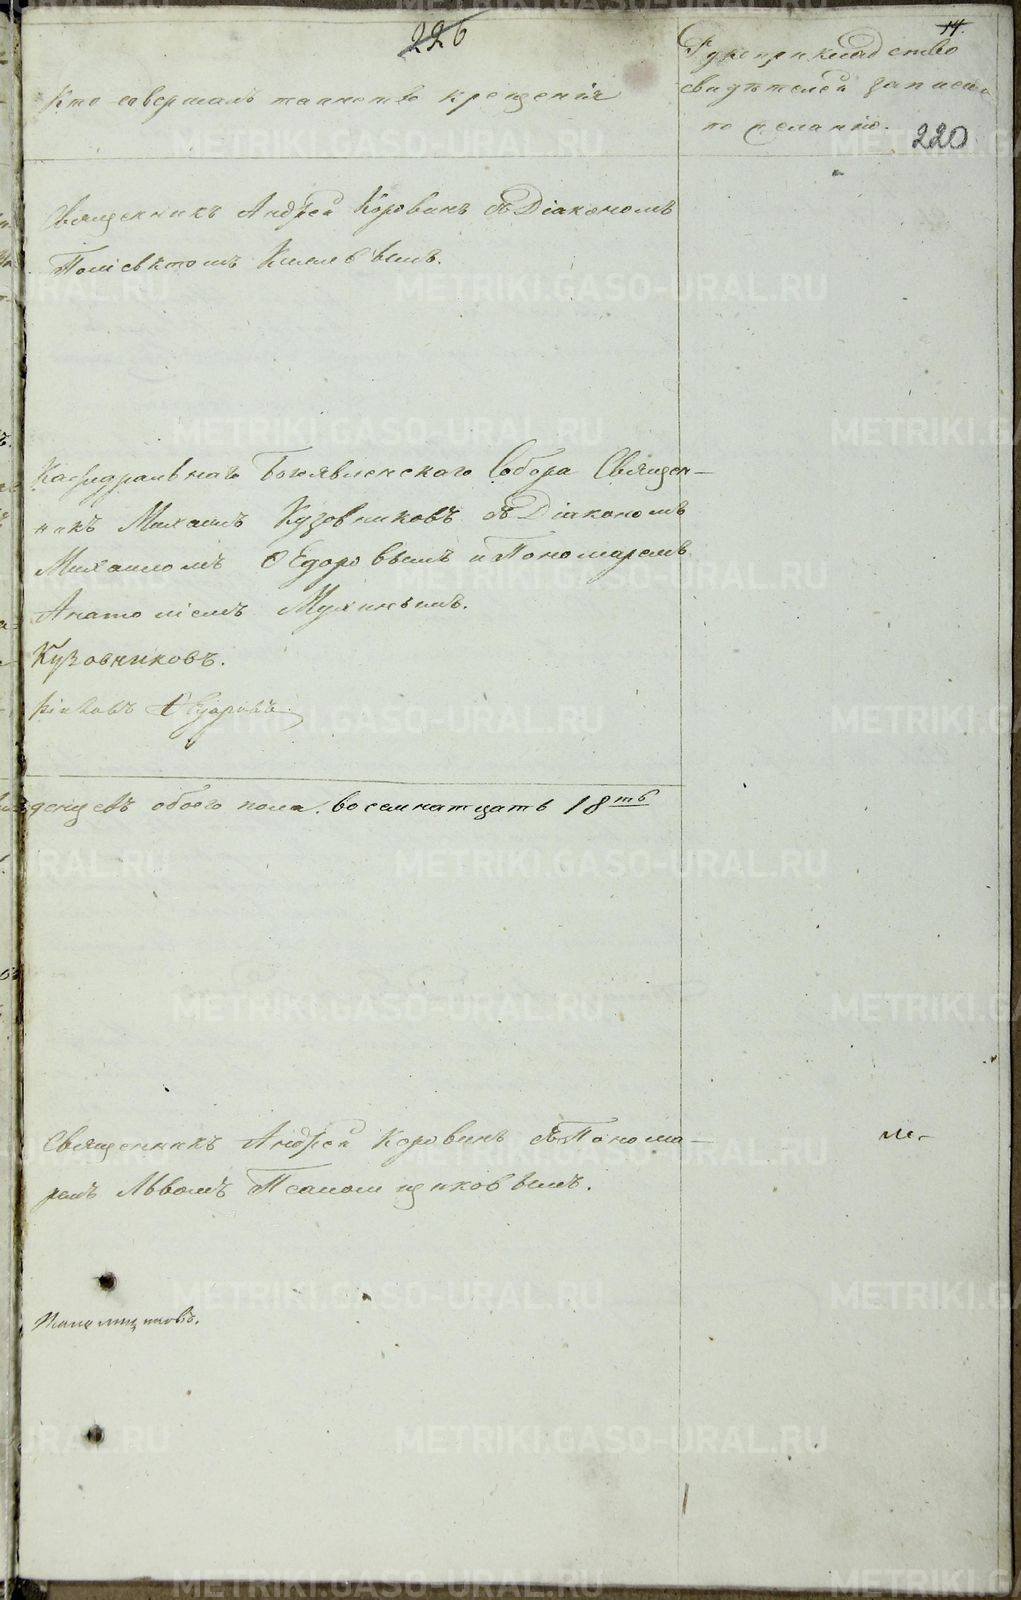 226
14.
Кто совершалъ таинство крещенія
Рукоприкладство
свидѣтелей записи
по желанію.
220
Священникъ Андрей Коровинъ съ Діакономъ
Поліевктомъ
Кафедральнаго Богоявленскаго Собора Священ-
никъ Михаилъ Кузовниковъ съ Діакономъ
Михаиломъ Ѳедоровымъ и Пономаремъ
Анатоліемъ Мухинымъ.
Кузовниковъ.
Діаконъ Ѳедоровъ.
денцевъ обоего пола восемнатцать 18ть
Священникъ Андрей Коровинъ съ Понома-
ремъ Львомъ Псаломщиковымъ.
Псаломщиковъ.
METRIKI.GASO-URAL.RU